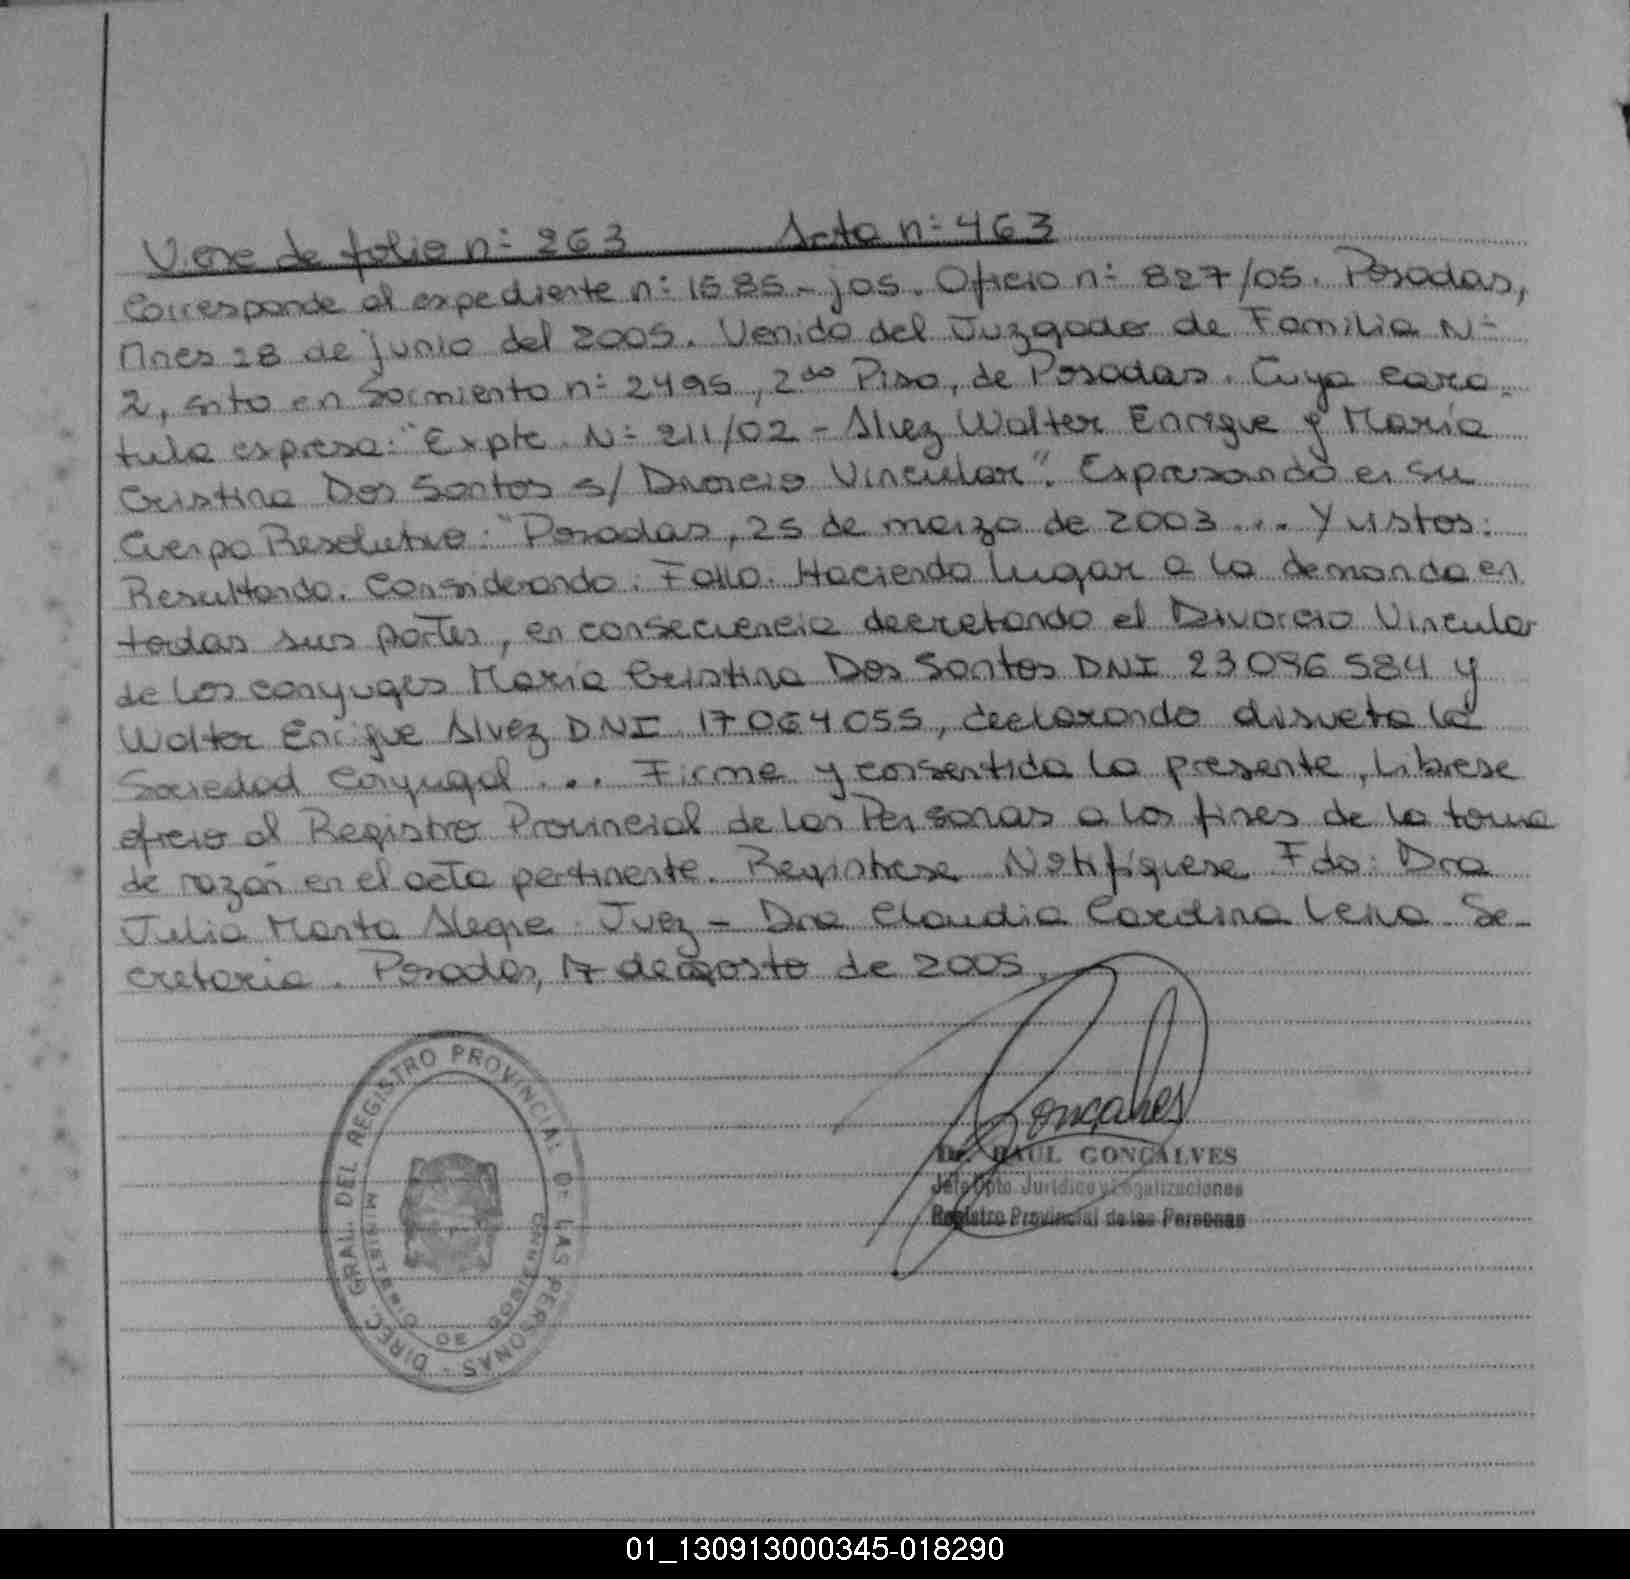 Viene de folio n: 263 Acta n: 463
Corresponde al expediente n: 1585-j05. Oficio n: 827/05. Posadas,
Mnes 28 de junio del 2005. Venido del Juzgado de Familia N:
2, sito en Sarmiento n: 2495, 2do Piso, de Posadas. Cuya cara-
tula expresa: "Expte. N: 211/02 - Alvez Walter Enrique y María
Cristina Dos Santos s/ Divorcio Vincular". Expresando en su
Cuerpo Resolutivo: "Posadas, 25 de marzo de 2003... Y vistos:
Resultando. Considerando: Fallo. Haciendo lugar a la demanda en
todas sus partes, en consecuencia decretando el Divorcio Vincular
de los conyuges María Cristina Dos Santos DNI 23 096 584 y
Walter Enrique Alvez DNI 17 064 055, declarando disuelta la
Sociedad Conyugal ... Firme y consentida la presente, Librese
oficio al Registro Provincial de las Personas a los fines de la toma
de razón en el acta pertinente. Registrese. Notifíquese. Fdo: Dra
Julia Marta Alegre. Juez - Dra Claudia Carolina Leiva. Se-
cretaria. Posadas, 17 de agosto de 2005.
Goncalves
Dr. RAUL GONCALVES
Jefe Dpto. Jurídico y Legalizaciones
Registro Provincial de las Personas
DIREC. GRAL. DEL REGISTRO PROVINCIAL DE LAS PERSONAS -
MINISTERIO DE GOBIERNO
01_130913000345-018290